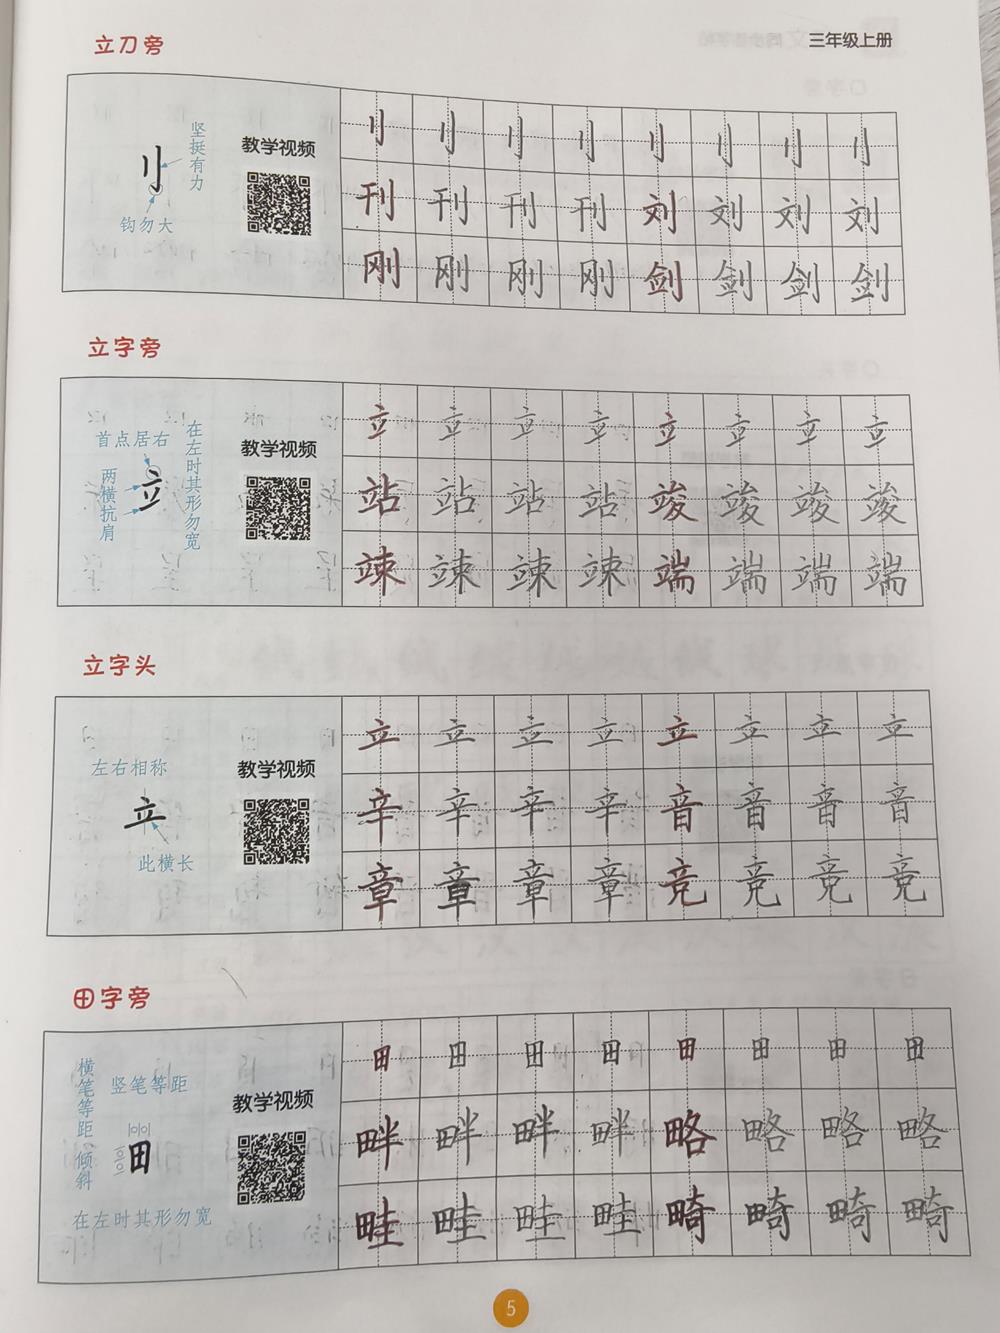 三年级上册
立刀旁
坚挺有力
刂
钩勿大
教学视频
刂刂刂刂刂刂刂刂
刊刊刊刊刘刘刘刘
刚刚刚刚剑剑剑剑
立字旁
首点居右
两横抗肩
立
在左时其形勿宽
教学视频
立立立立立立立立
站站站站竣竣竣竣
竦竦竦竦端端端端
立字头
左右相称
立
此横长
教学视频
立立立立立立立立
辛辛辛辛音音音音
章章章章竞竞竞竞
田字旁
横笔等距 倾斜
竖笔等距
田
在左时其形勿宽
教学视频
田田田田田田田田
畔畔畔畔略略略略
畦畦畦畦畸畸畸畸
5